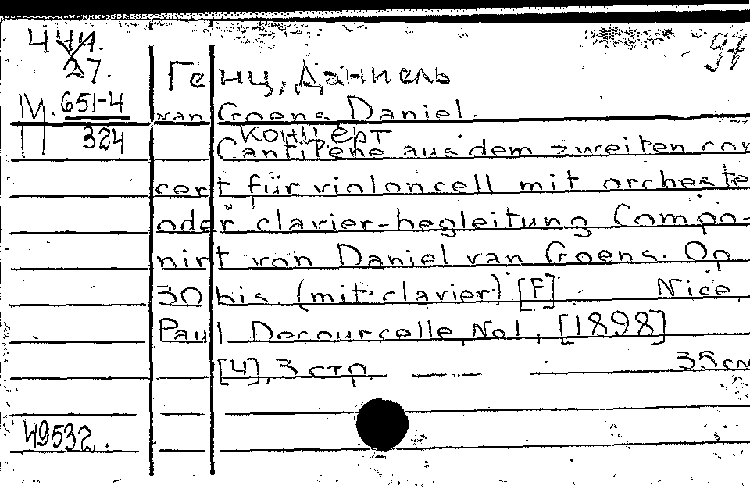 ЧЧИ.
27.
97
Генц, Даниель
М. 651-4
324
van Goens Daniel.
концерт
Cantilene aus dem zweiten con
cert für violoncell mit orcheste
oder clavier-begleitung Compo-
nirt von Daniel van Goens. Op
30 bis (mit clavier) [F] Nice,
Paul Decourcelle, No1, [1898]
[4], 3 стр. — — 35 см
49532.